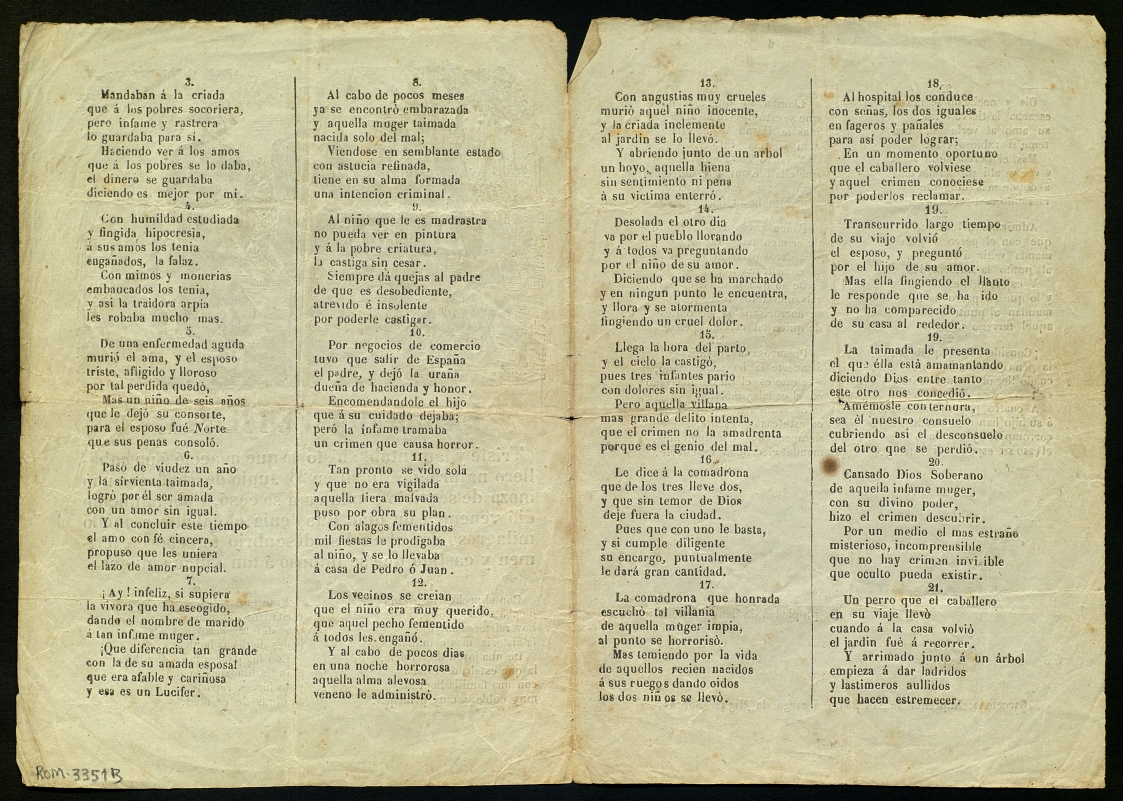 3.
Mandaban á la criada
que á los pobres socoriera,
pero infame y rastrera
lo guardaba para si.
Haciendo ver á los amos
que á los pobres se lo daba,
el dinero se guardaba
diciendo es mejor por mi.
4.
Con humildad estudiada
y fingida hipocresia,
á sus amos los tenia
engañados, la falaz.
Con mimos y monerias
embaucados los tenia,
y asi la traidora arpia
les robaba mucho mas.
5.
De una enfermedad aguda
murió el ama, y el esposo
triste, afligido y lloroso
por tal perdida quedó,
Mas un niño de seis años
que le dejó su consorte,
para el esposo fué Norte
que sus penas consoló.
6.
Pasó de viudez un año
y la sirvienta taimada,
logró por él ser amada
con un amor sin igual.
Y al concluir este tiempo
el amo con fé cincera,
propuso que les uniera
el lazo de amor nupcial.
7.
¡Ay! infeliz, si supiera
la vivora que ha escogido,
dando el nombre de marido
á tan infame muger.
¡Que diferencia tan grande
con la de su amada esposa!
que era afable y cariñosa
y esa es un Lucifer.
8.
Al cabo de pocos meses
ya se encontrò embarazada
y aquella muger taimada
nacida solo del mal;
Viendose en semblante estado
con astucia refinada,
tiene en su alma formada
una intencion criminal.
9.
Al niño que le es madrastra
no pueda ver en pintura
y á la pobre criatura,
la castiga sin cesar.
Siempre dá quejas al padre
de que es desobediente,
atrevido é insolente
por poderle castigar.
10.
Por negocios de comercio
tuvo que salir de España
el padre, y dejó la uraña
dueña de hacienda y honor.
Encomendandole el hijo
que á su cuidado dejaba;
peró la infame tramaba
un crimen que causa horror.
11.
Tan pronto se vido sola
y que no era vigilada
aquella fiera malvada
puso por obra su plan.
Con alagos fementidos
mil fiestas le prodigaba
al niño, y se lo llevaba
á casa de Pedro ó Juan.
12.
Los vecinos se creian
que el niño era muy querido,
que aquel pecho fementido
á todos les engañó.
Y al cabo de pocos dias
en una noche horrorosa
aquella alma alevosa
veneno le administrò.
13.
Con angustias muy crueles
murió aquel niño inocente,
y la criada inclemente
al jardin se lo llevó.
Y abriendo junto de un arbol
un hoyo, aquella hiena
sin sentimiento ni pena
à su victima enterrò.
14.
Desolada el otro dia
va por el pueblo llorando
y á todos va preguntando
por el niño de su amor.
Diciendo que se ha marchado
y en ningun punto le encuentra,
y llora y se atormenta
fingiendo un cruel dolor.
15.
Llega la hora del parto,
y el cielo la castigò,
pues tres infantes pario
con dolores sin igual.
Pero aquella villana
mas grande delito intenta,
que el crimen no la amadrenta
porque es el genio del mal.
16.
Le dice á la comadrona
que de los tres lleve dos,
y que sin temor de Dios
deje fuera la ciudad.
Pues que con uno le basta,
y si cumple diligente
su encargo, puntualmente
le dará gran cantidad.
17.
La comadrona que honrada
escuchò tal villania
de aquella muger impia,
al punto se horrorisò.
Mas temiendo por la vida
de aquellos recien nacidos
á sus ruegos dando oidos
los dos niños se llevò.
18.
Al hospital los conduce
con señas, los dos iguales
en fageros y pañales
para asi poder lograr;
En un momento oportuno
que el caballero volviese
y aquel crimen conociese
por poderlos reclamar.
19.
Transcurrido largo tiempo
de su viaje volvió
el esposo, y preguntó
por el hijo de su amor.
Mas ella fingiendo el llanto
le responde que se ha ido
y no ha comparecido
de su casa al rededor.
19.
La taimada le presenta
el que élla està amamantando
diciendo Dios entre tanto
este otro nos concedió.
Amémosle con ternura,
sea él nuestro consuelo
cubriendo asi el desconsuelo
del otro que se perdió.
20.
Cansado Dios Soberano
de aquella infame muger,
con su divino poder,
hizo el crimen descubrir.
Por un medio el mas estraño
misterioso, incomprensible
que no hay criman invisible
que oculto pueda existir.
21.
Un perro que el caballero
en su viaje llevò
cuando á la casa volvió
el jardin fuè à recorrer.
Y arrimado junto á un árbol
empieza á dar ladridos
y lastimeros aullidos
que hacen estremecer.
ROM-3351B